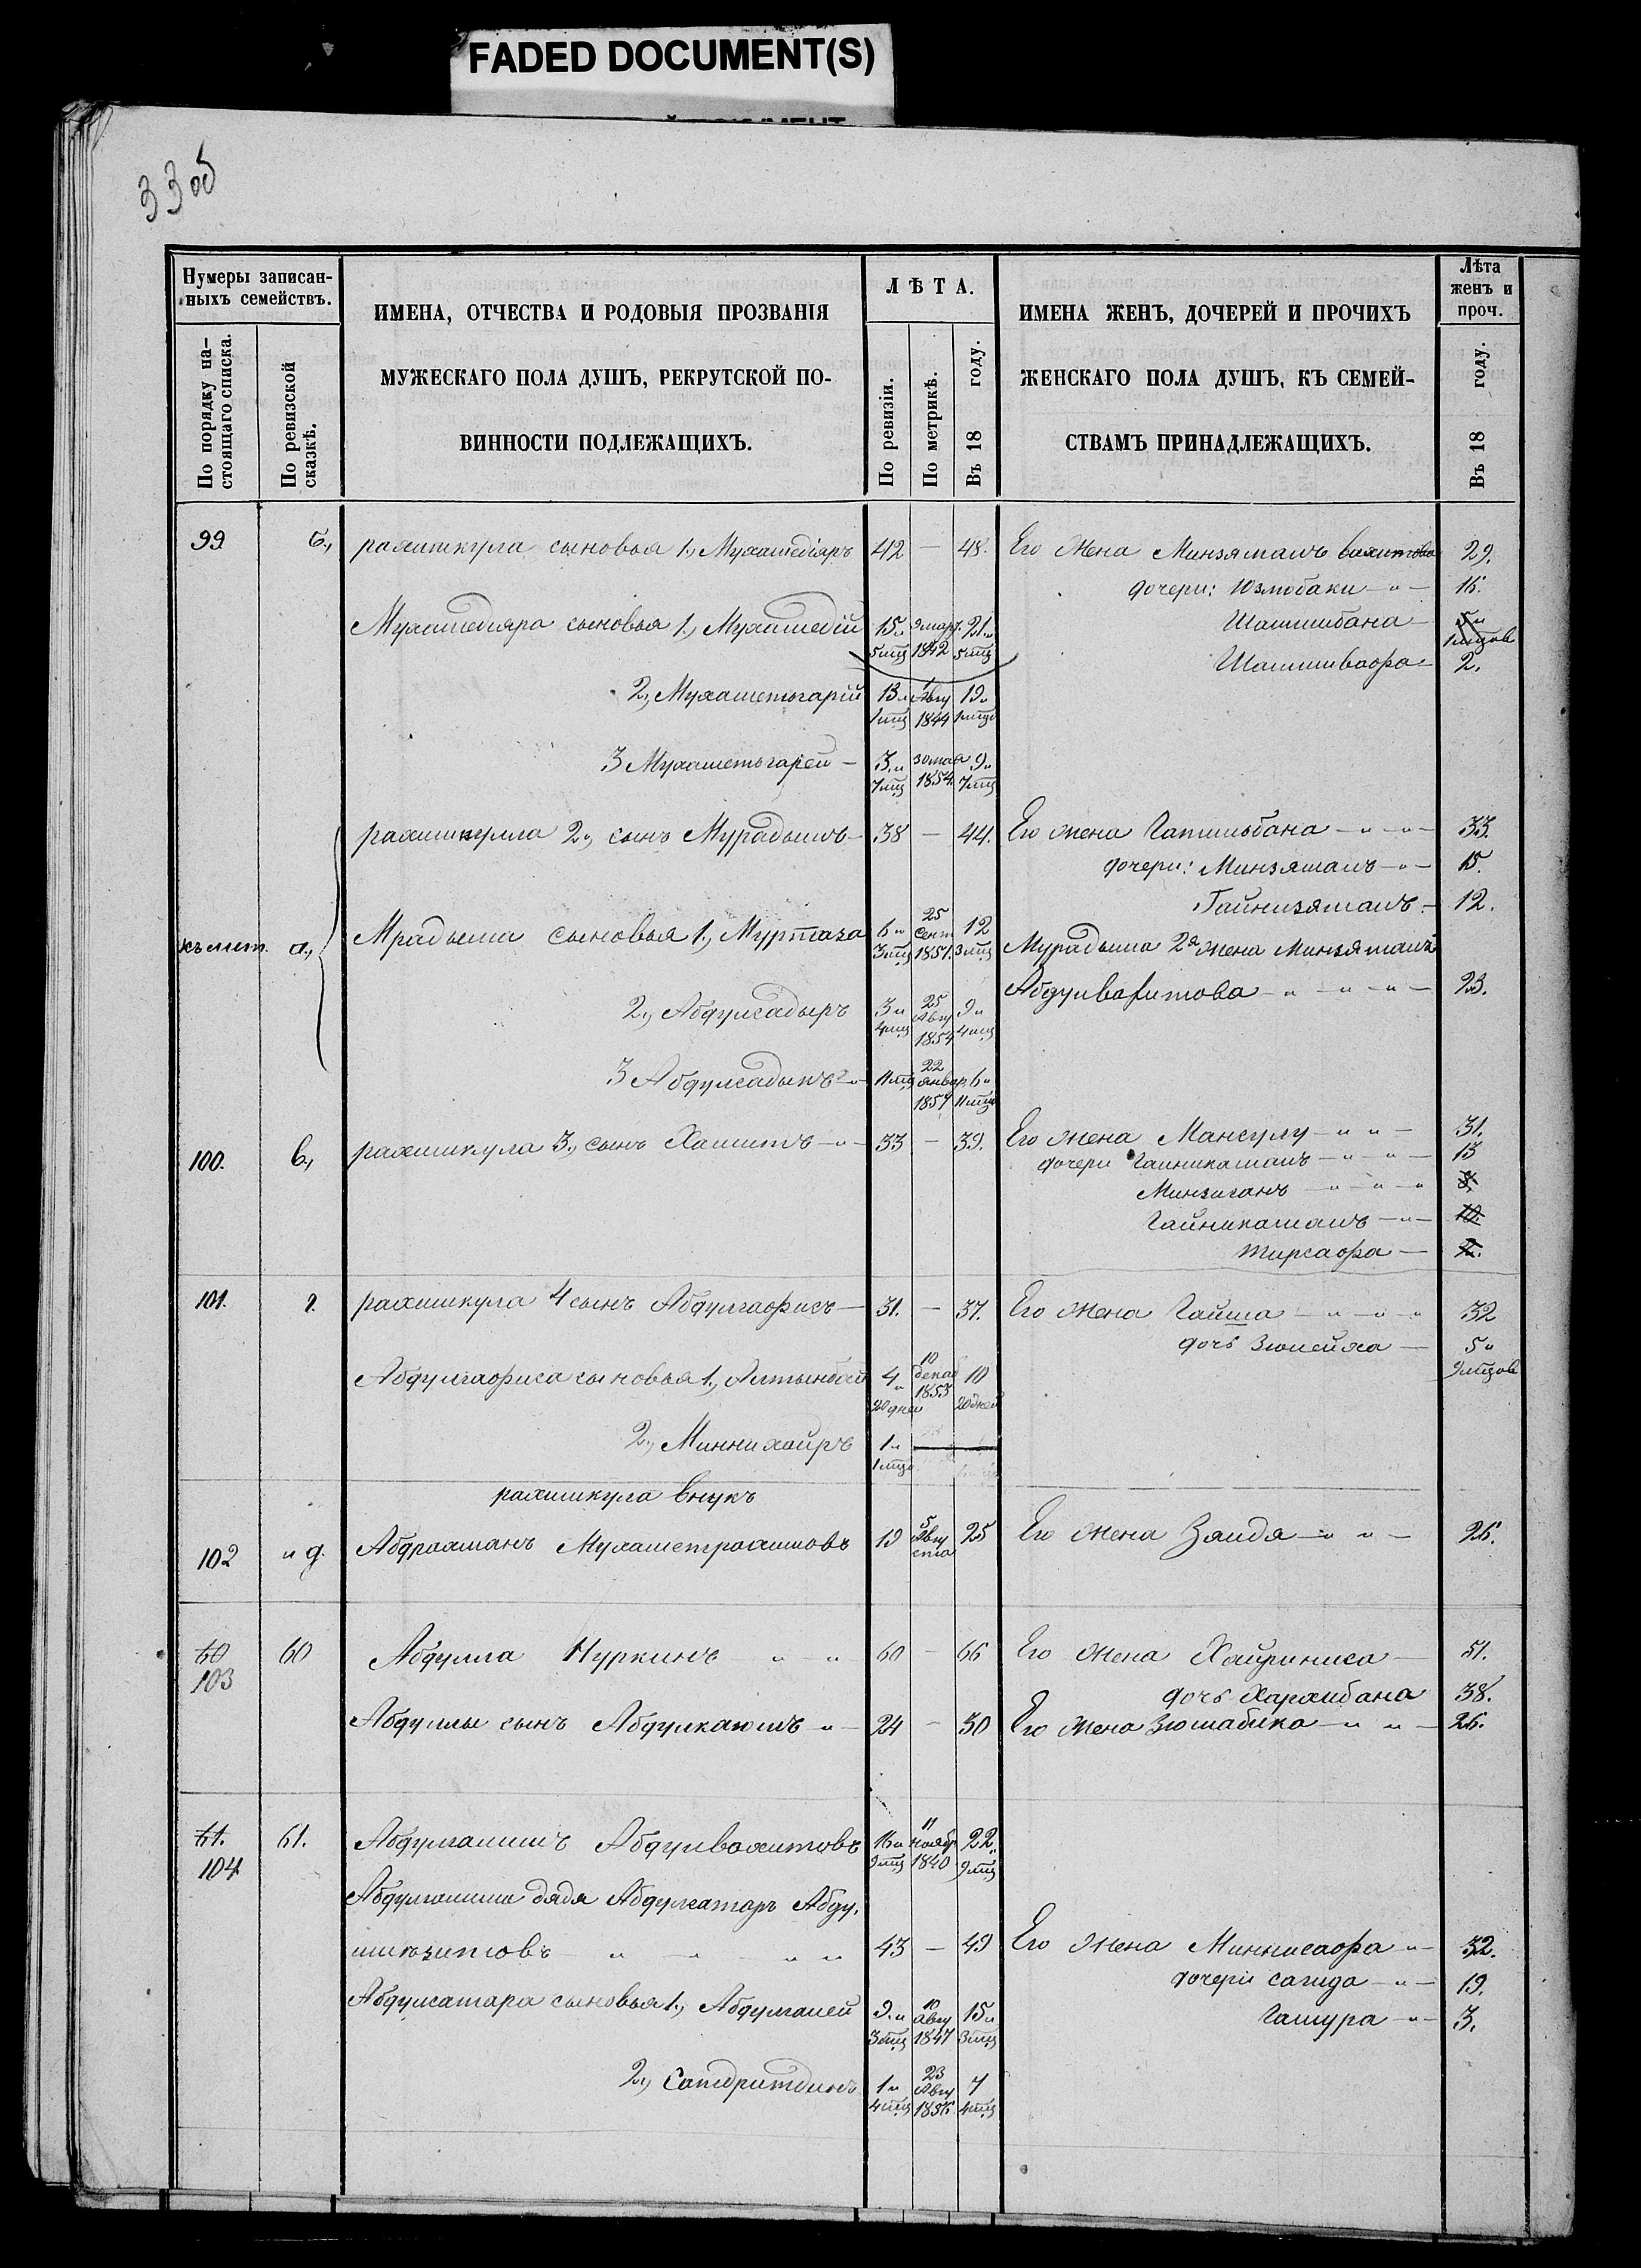 FADED DOCUMENT(S)
33об
Нумеры записан-
ныхъ семействъ.
По порядку на-
стоящаго списка.
По ревизской
сказкѣ.
ИМЕНА, ОТЧЕСТВА И РОДОВЫЯ ПРОЗВАНІЯ
МУЖЕСКАГО ПОЛА ДУШЪ, РЕКРУТСКОЙ ПО-
ВИННОСТИ ПОДЛЕЖАЩИХЪ.
ЛѢТА.
По ревизіи.
По метрикѣ.
Въ 18 году.
ИМЕНА ЖЕНЪ, ДОЧЕРЕЙ И ПРОЧИХЪ
ЖЕНСКАГО ПОЛА ДУШЪ, КЪ СЕМЕЙ-
СТВАМЪ ПРИНАДЛЕЖАЩИХЪ.
Лѣта
женъ и
проч.
Въ 18 году.
99 б, рахимкула сыновья 1, Мухамедіяръ 42 — 48. Его жена Минзямалъ 29.
дочери: Юзлюбаки 16.
Мухамедіяра сыновья 1, Мухамедій 15 5мц 9 мар 1842 21 5мц
Шамшибана
Шамшивафа 2.
2, Мухаметьгарій 13 1844 19
3 Мухаметьгарей — 3 7мц 30 мая 1854 9 7мц
рахимкулла 2, сынъ Мурадымъ 38 — 44. Его жена Гапшльбана 33.
дочери: Минзямалъ 15.
Гайнизямалъ 12.
а, Мрадыма сыновья 1, Муртаза 6 3мц 25 Сент 1851. 12 3мц
Мурадыма 2я жена Минзямалъ
Абдулвахитова 23.
2, Абдулсадыръ 3 4мц 25 Авгу 1854 9 4мц
3 Абдулсадыкъ 11мц 22 январ 1857 6 11мц
100. в, рахимкула 3, сынъ Хамитъ 33 — 39. Его жена Мансулу 31.
дочери Гайникамалъ 13
Минзиганъ
Гайникамалъ 10.
101. г. рахимкула 4 сынъ Абдулгафисъ — 31. — 37. Его жена Гайша 32
дочь Зюлейха — 5
9мцов
Абдулгафиса сыновья 1, Алтынбай 4 20 дней 10 декаб 1853 10 20 дней
2, Миннихаиръ 1
рахимкула внукъ
102 и д. Абдрахманъ Мухаметрахимовъ 19 5 Авгу ста 25 Его жена Заида 26.
60
103 60 Абдулла Нуркинъ 60 — 66 Его жена Хайриниса — 51.
дочь Хархибана 38.
Абдуллы сынъ Абдулкаюмъ 24 — 30 Его жена Зюмабика 26.
61.
104 61. Абдулгалимъ Абдулвахитовъ 16 9мц 11 ноябр 1840 22 9мц
Абдулгалима дядя Абдулсатаръ Абду.
43 — 49 Его жена Миннисафа 32.
дочери сагида 19.
Абдулсатара сыновья 1, Абдулганей 9 3мц 10 авгу 1847 15 3мц
Гашура 3.
2, Сатдритдинъ 1 4мц 23 Авгу 1856 7 4мц